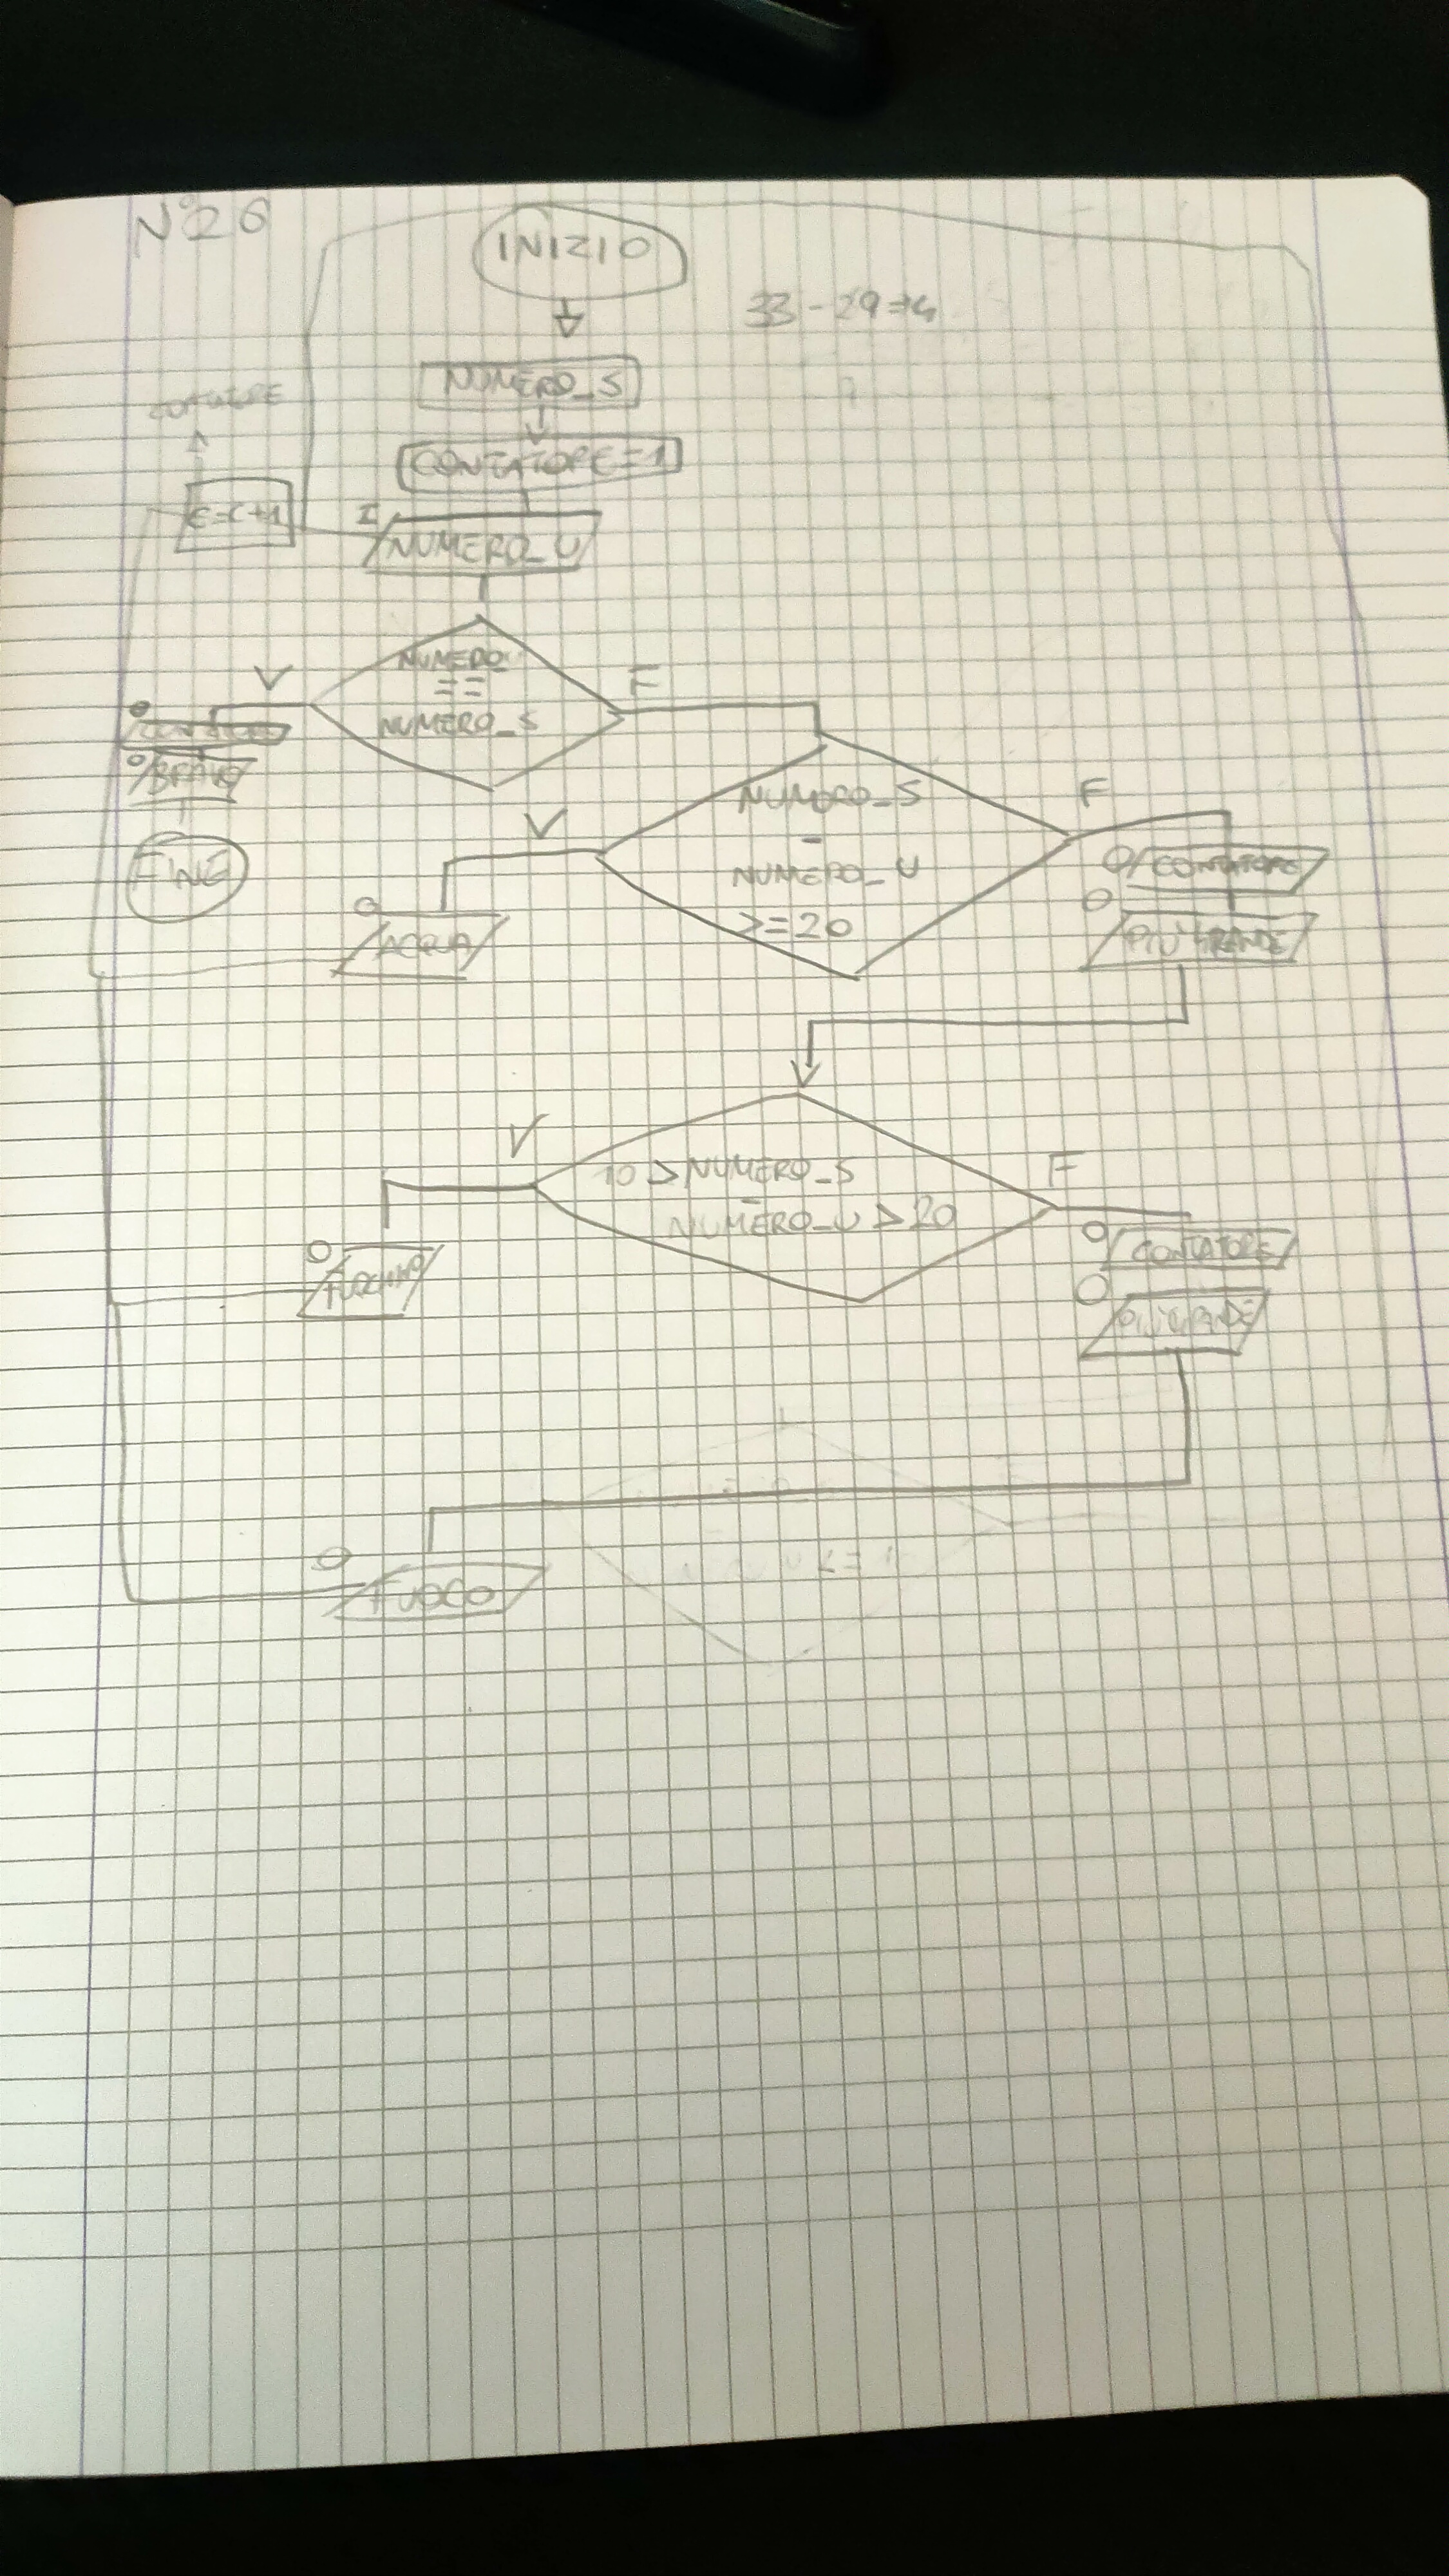 N°26
INIZIO
33-29=4
NUMERO_S
CONTATORE=1
C=C+1
I
NUMERO_U
NUMERO
==
NUMERO_S
V
F
O
O
BRAVO
FINE
NUMERO_S
-
NUMERO_U
>=20
V
F
O
ACQUA
O CONTATORE
O
PIÙ GRANDE
10>NUMERO_S
-
NUMERO_U>20
V
F
O
O CONTATORE
O
PIÙ GRANDE
O
FUOCO